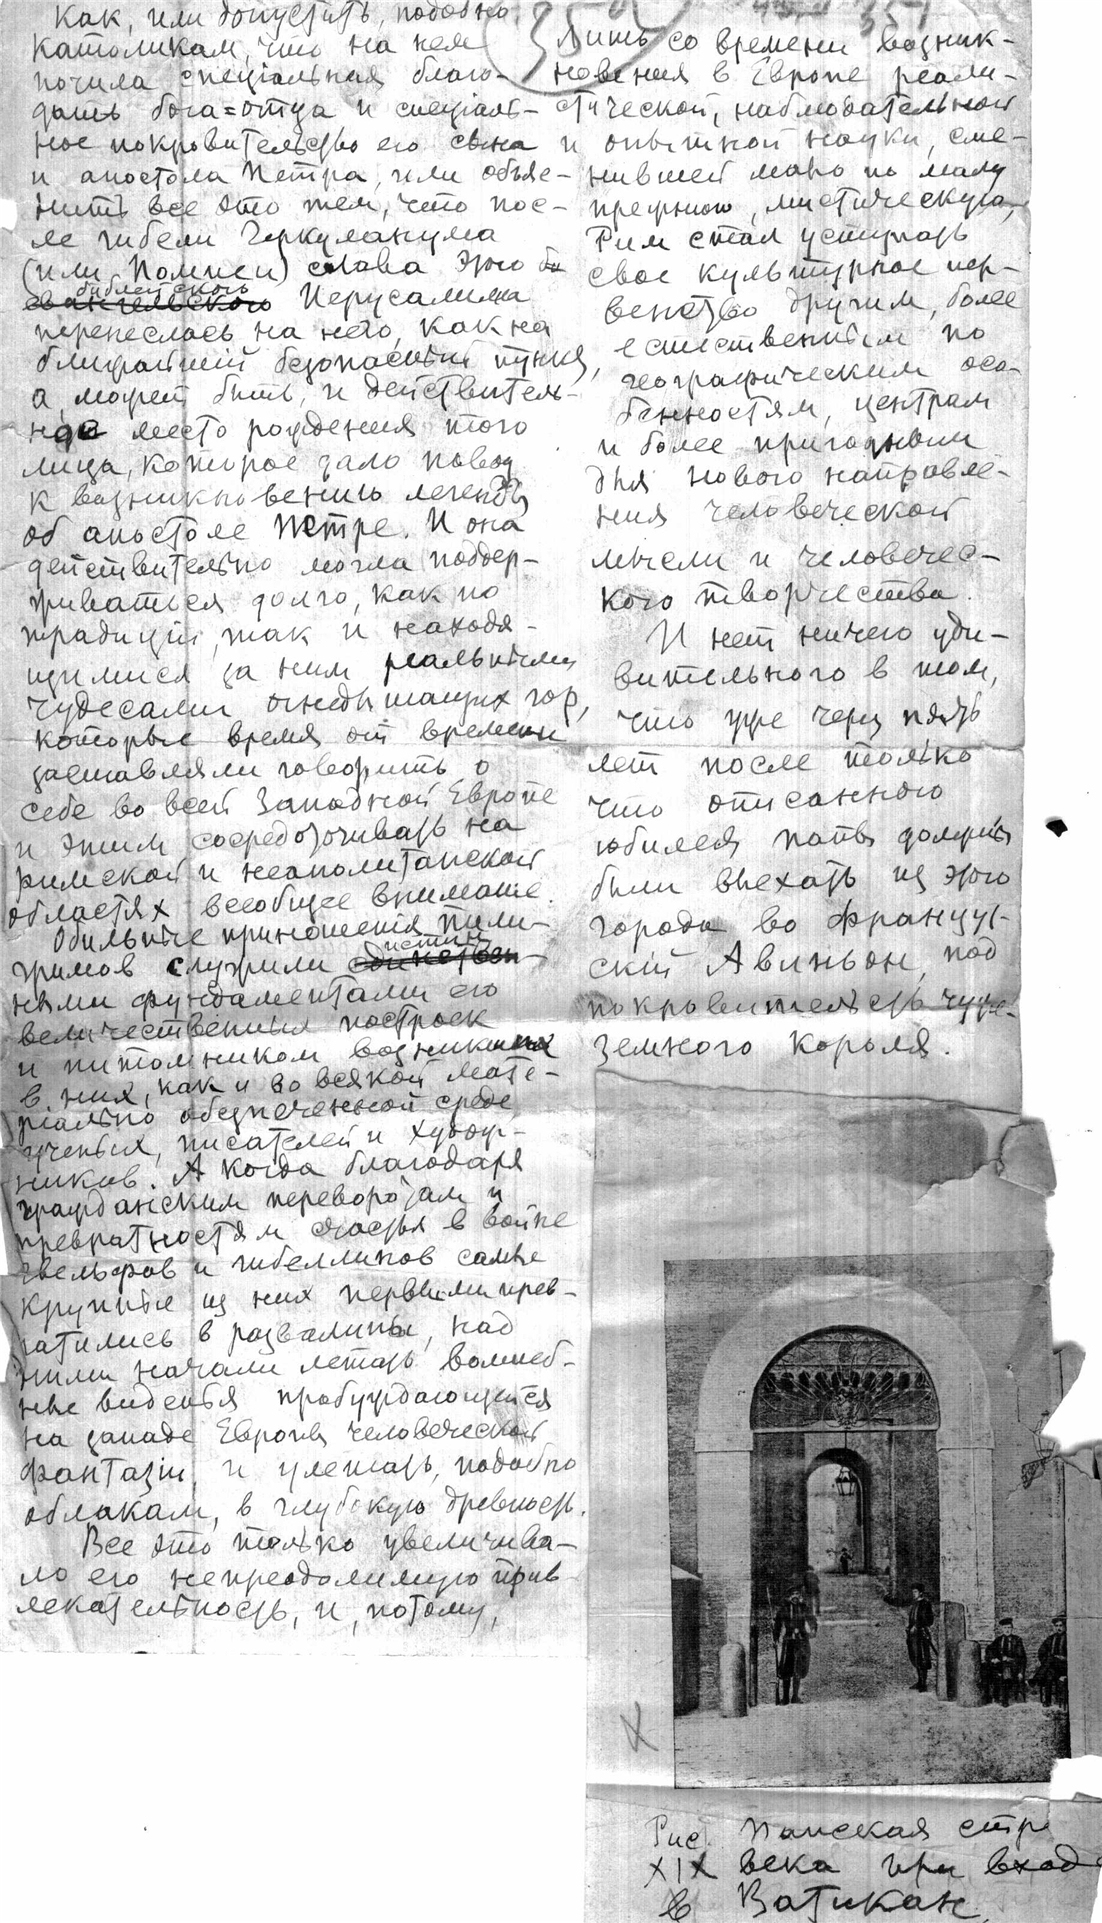 Как, или допустить, подобно
католикам, что на нем
почила специальная благо-
дать бога=отца и специаль-
ное покровительство его сына
и апостола Петра, или объяс-
нить все это тем, что пос-
ле гибели Геркуланума
(или Помпеи) слава этого
библейского
евангельского Иерусалима
перенеслась на него, как на
ближайший безопасный пункт,
а, может быть, и действитель-
ное место рождения того
лица, которое дало повод
к возникновению легенды
об апостоле Петре. И она
действительно могла поддер-
живаться долго, как по
традиции, так и находя-
щимися за ним реальными
чудесами огнедышащих гор,
которые время от времени
заставляли говорить о
себе во всей Западной Европе
и этим сосредоточивать на
римской и неаполитанской
областях всеобщее внимание.
Обильные приношения пили-
гримов служили
ными фундаментами его
величественных построек
и питомником возникших
в них, как и во всякой мате-
риально обеспеченной среде
ученых, писателей и худож-
ников. А когда благодаря
гражданским переворотам и
превратностям счастья в войне
гвельфов и гибеллинов самые
крупные из них первыми прев-
ратились в развалины, над
ними начали летать волшеб-
ные виденья пробуждающейся
на западе Европы человеческой
фантазии, и улетать, подобно
облакам, в глубокую древность.
Все это только увеличива-
ло его непреодолимую прив-
лекательность, и, потому,
35
357
Лишь со времени возник-
новения в Европе реали-
стической, наблюдательной
и опытной науки, сме-
нившей мало по малу
прежнюю, мистическую,
Рим стал уступать
свое культурное пер-
венство другим, более
естественным по
географическим осо-
бенностям, центрам
и более пригодным
для нового направле-
ния человеческой
мысли и человечес-
кого творчества.
И нет ничего уди-
вительного в том,
что уже через пять
лет после только
что описанного
юбилея папы должны
были выехать из этого
города во француз-
ский Авиньон, под
покровительств чуже-
земного короля.
X
Рис. Папская стр
XIX века при вход
в Ватикан.